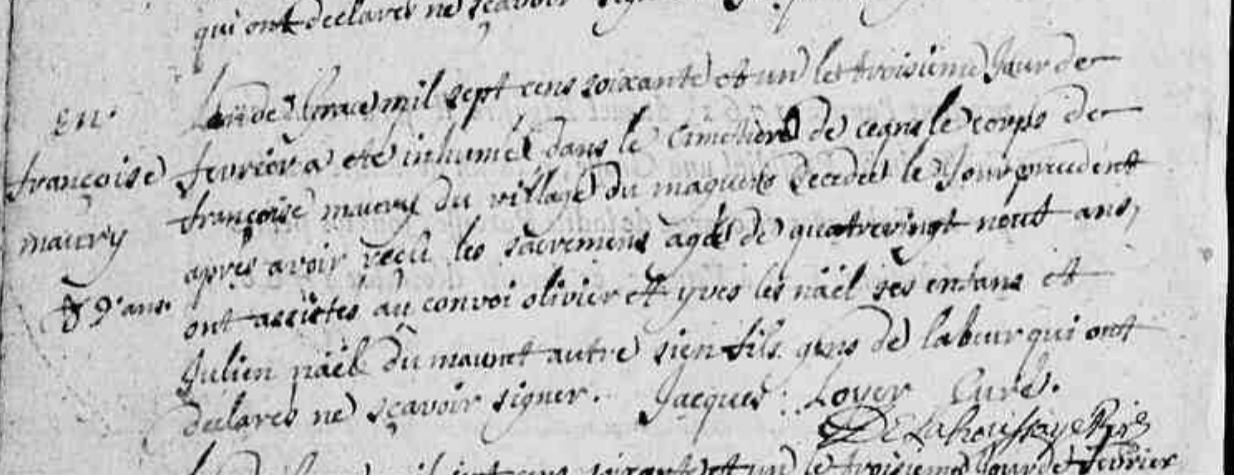 qui ont declares ne sçavoir
en.
françoise
maury
89 ans.
L'an de grace mil sept cens soixante et un le troisieme Jour de
fevrier a eté inhumé dans le Cimetiere de ceans le corps de
françoise maury du village du decedeé le Jour precedent
apres avoir recu les sacremens ageé de quatrevingt neuf ans,
ont assistes au convoi olivier et yves les näel ses enfans et
Julien näel du autre sien fils gens de labeur qui ont
declares ne sçavoir signer. Jacques Loyer Curé.
De Lahoussaye
sept cens soixante et un le troisieme Jour de fevrier